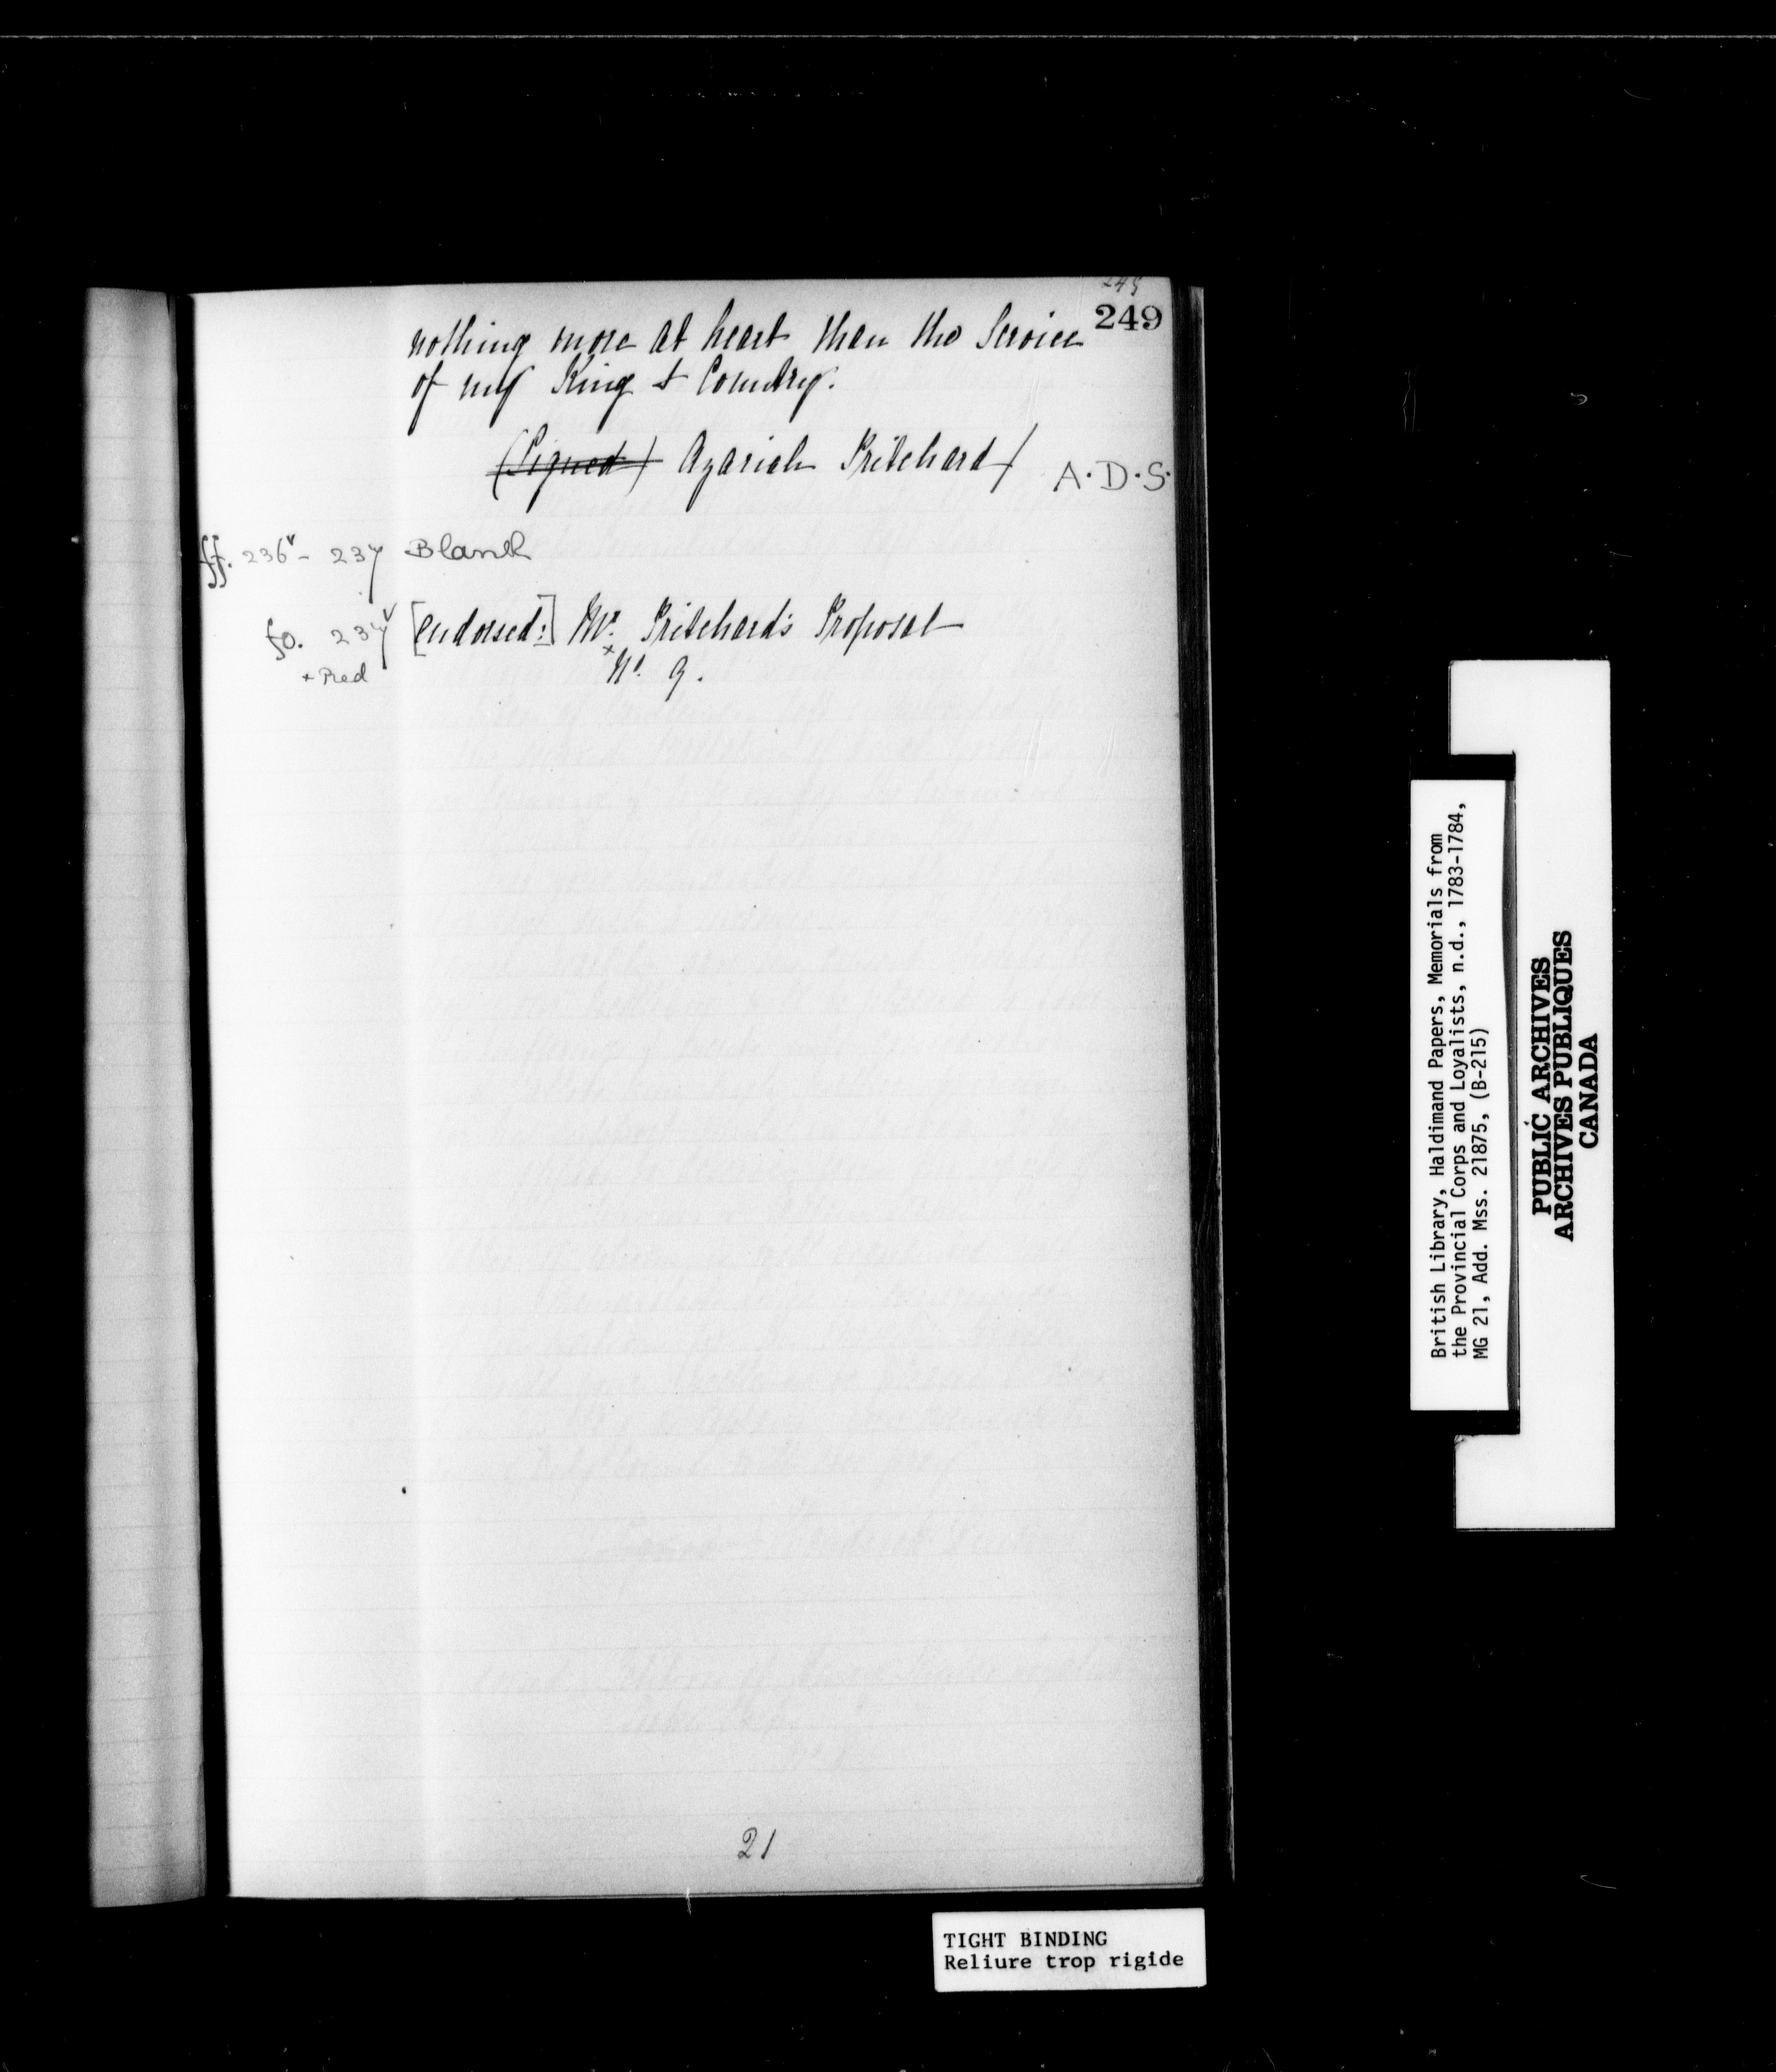 249
nothing more at heart than the Service
of my King & Country.
(Signed) Azariah Pritchard/ A.D.S.
ff. 236v - 237 Blank
fo. 237v [endorsed:] Mr. Pritchard's Proposal
+ Red × No. 9.
21
TIGHT BINDING
Reliure trop rigide
British Library, Haldimand Papers, Memorials from
the Provincial Corps and Loyalists, n.d., 1783-1784,
MG 21, Add. Mss. 21875, (B-215)
PUBLIC ARCHIVES
ARCHIVES PUBLIQUES
CANADA